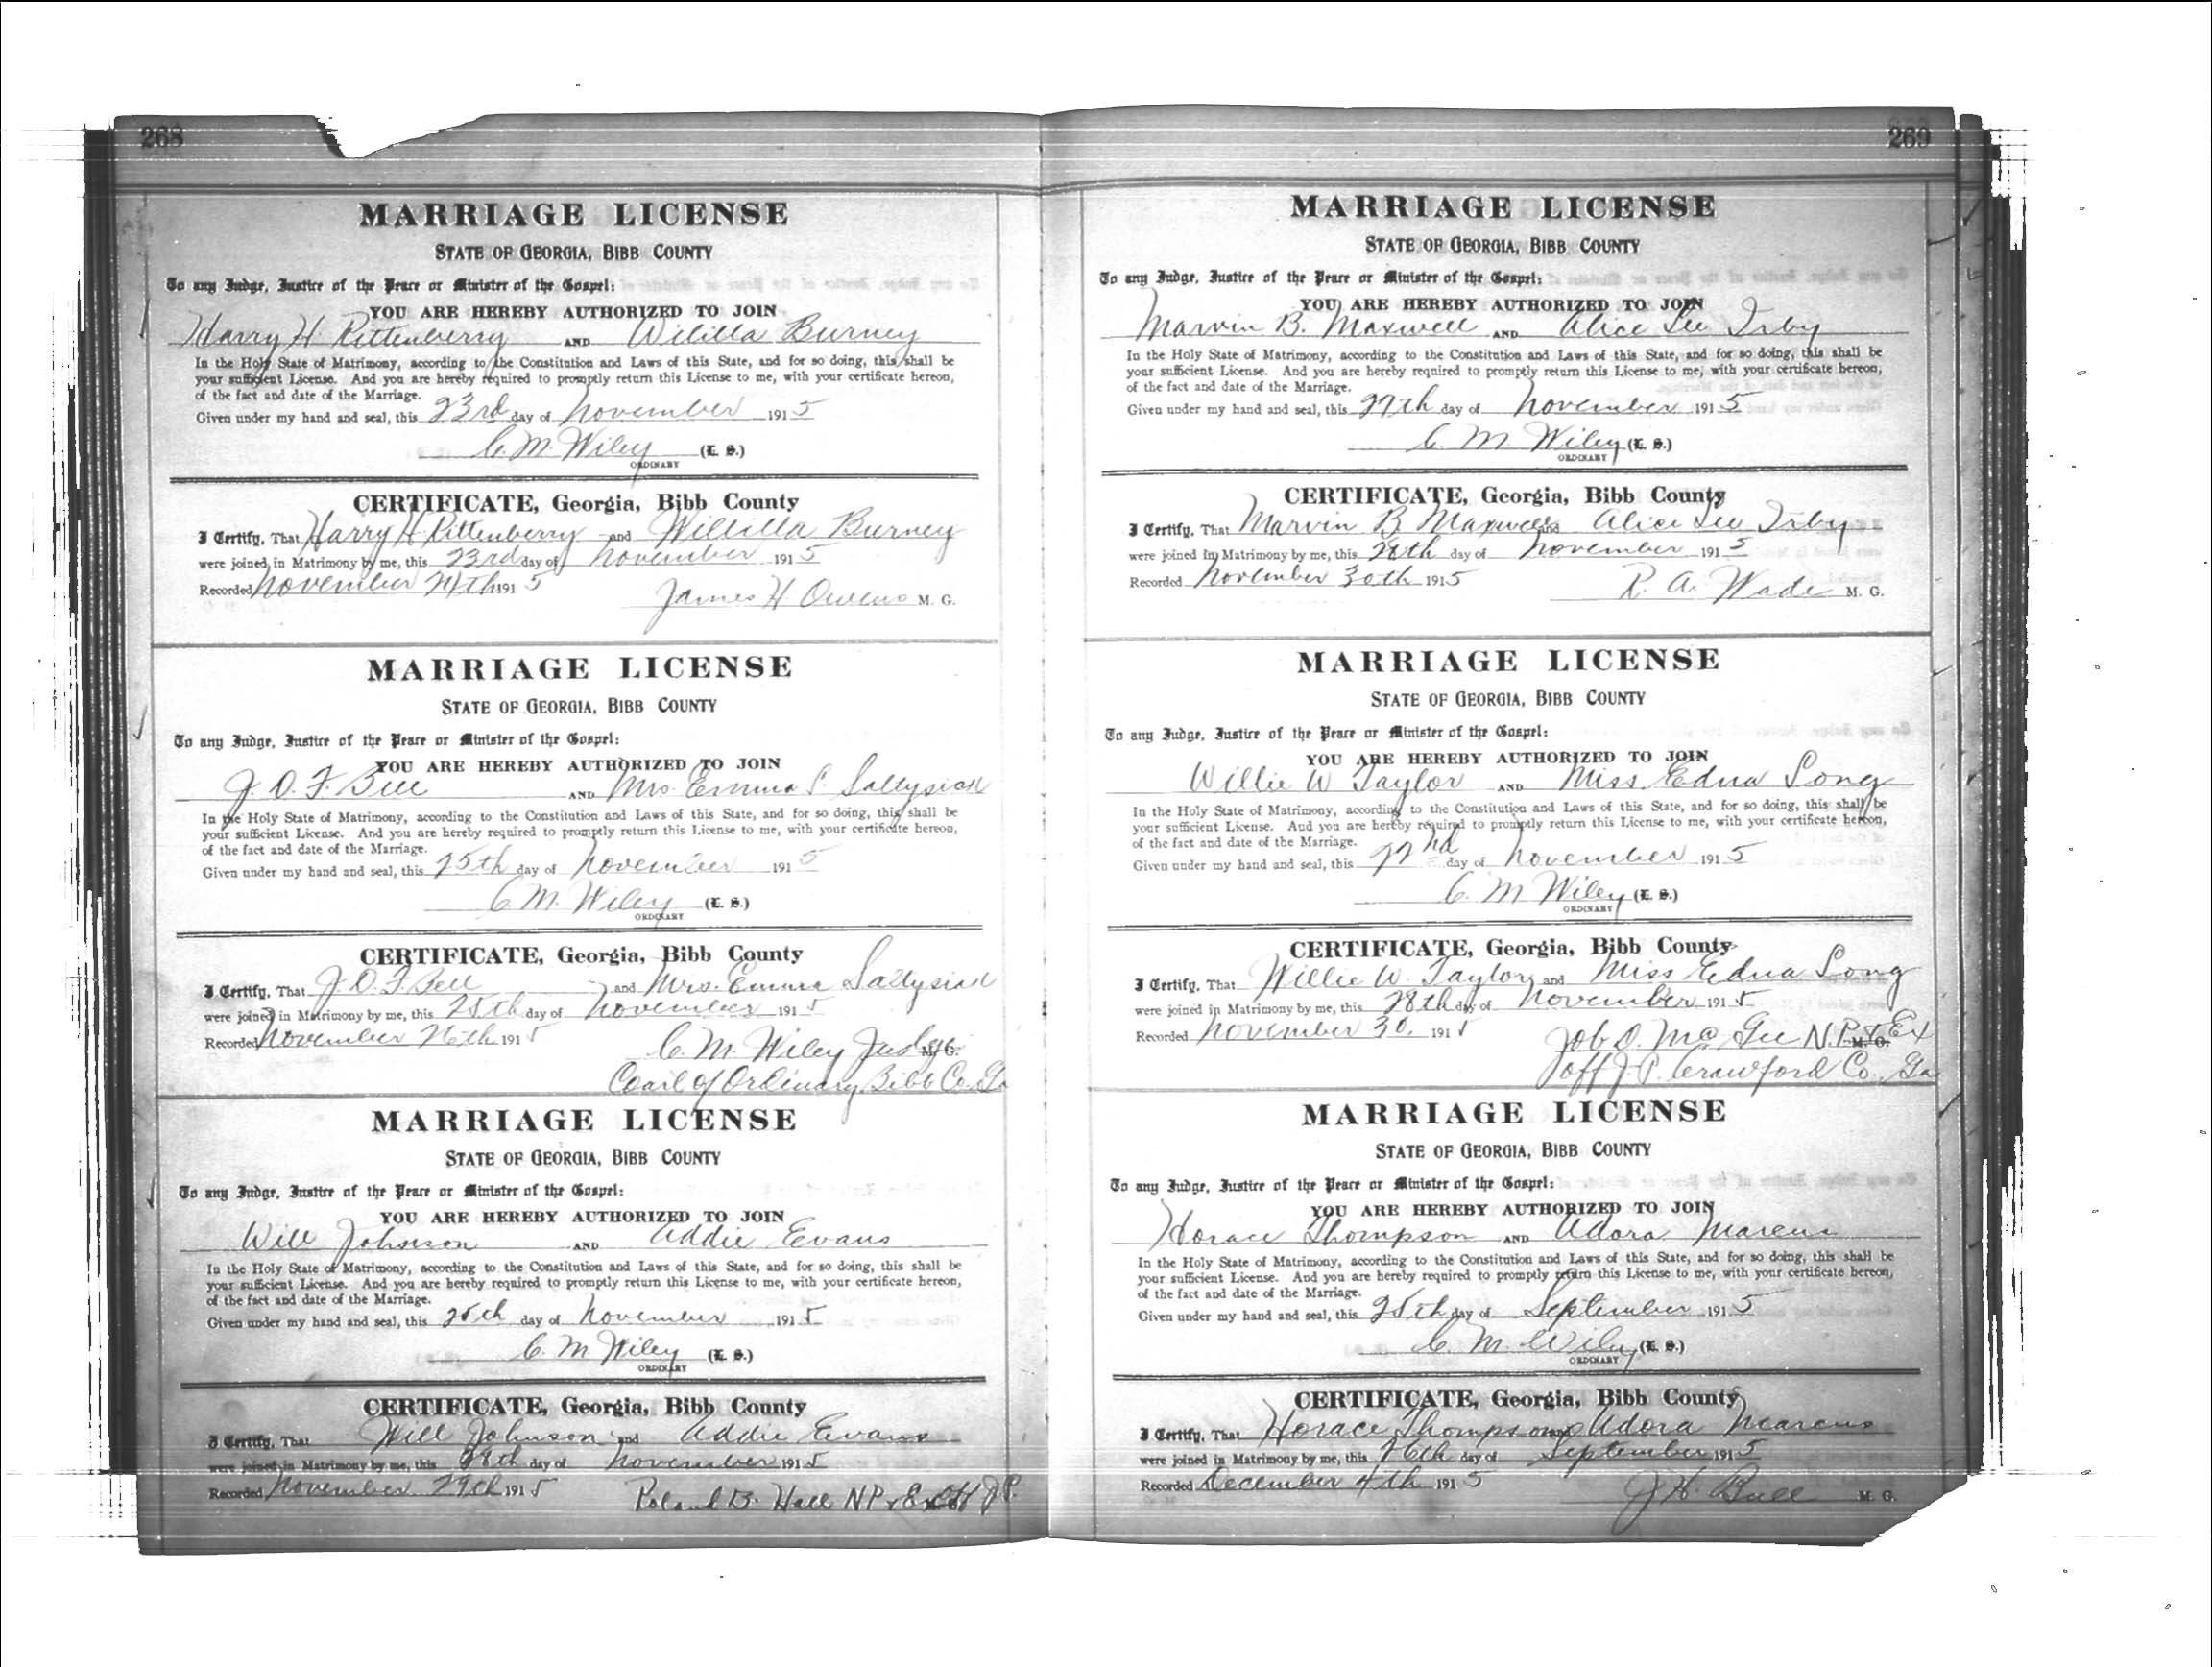 268
MARRIAGE LICENSE
STATE OF GEORGIA, BIBB COUNTY
To any Judge, Justice of the Peace or Minister of the Gospel:
YOU ARE HEREBY AUTHORIZED TO JOIN
Harry H. Rittenberry AND Willilla Burney
In the Holy State of Matrimony, according to the Constitution and Laws of this State, and for so doing, this shall be
your sufficient License. And you are hereby required to promptly return this License to me, with your certificate hereon,
of the fact and date of the Marriage.
Given under my hand and seal, this 23rd day of November 1915
C. M. Wiley (L. S.)
ORDINARY
CERTIFICATE, Georgia, Bibb County
I Certify, That Harry H. Rittenberry and Willilla Burney
were joined in Matrimony by me, this 23rd day of November 1915
Recorded November 24th 1915
James H. Owens M. G.
MARRIAGE LICENSE
STATE OF GEORGIA, BIBB COUNTY
To any Judge, Justice of the Peace or Minister of the Gospel:
YOU ARE HEREBY AUTHORIZED TO JOIN
J. O. F. Bell AND Mrs. Emma S. Sallysiad
In the Holy State of Matrimony, according to the Constitution and Laws of this State, and for so doing, this shall be
your sufficient License. And you are hereby required to promptly return this License to me, with your certificate hereon,
of the fact and date of the Marriage.
Given under my hand and seal, this 25th day of November 1915
C. M. Wiley (L. S.)
ORDINARY
CERTIFICATE, Georgia, Bibb County
I Certify, That J. O. F. Bell and Mrs. Emma Sallysiad
were joined in Matrimony by me, this 25th day of November 1915
Recorded November 26th 1915
C. M. Wiley Judge M. G.
Court of Ordinary Bibb Co. Ga
MARRIAGE LICENSE
STATE OF GEORGIA, BIBB COUNTY
To any Judge, Justice of the Peace or Minister of the Gospel:
YOU ARE HEREBY AUTHORIZED TO JOIN
Will Johnson AND Addie Evans
In the Holy State of Matrimony, according to the Constitution and Laws of this State, and for so doing, this shall be
your sufficient License. And you are hereby required to promptly return this License to me, with your certificate hereon,
of the fact and date of the Marriage.
Given under my hand and seal, this 25th day of November 1915
C. M. Wiley (L. S.)
ORDINARY
CERTIFICATE, Georgia, Bibb County
I Certify, That Will Johnson and Addie Evans
were joined in Matrimony by me, this 28th day of November 1915
Recorded November 29th 1915
Roland B. Hall N P & Ex Off J P.
269
MARRIAGE LICENSE
STATE OF GEORGIA, BIBB COUNTY
To any Judge, Justice of the Peace or Minister of the Gospel:
YOU ARE HEREBY AUTHORIZED TO JOIN
Marvin B. Maxwell AND Alice Lee Irby
In the Holy State of Matrimony, according to the Constitution and Laws of this State, and for so doing, this shall be
your sufficient License. And you are hereby required to promptly return this License to me, with your certificate hereon,
of the fact and date of the Marriage.
Given under my hand and seal, this 27th day of November 1915
C. M. Wiley (L. S.)
ORDINARY
CERTIFICATE, Georgia, Bibb County
I Certify, That Marvin B Maxwell and Alice Lee Irby
were joined in Matrimony by me, this 28th day of November 1915
Recorded November 30th 1915
R. A. Wade M. G.
MARRIAGE LICENSE
STATE OF GEORGIA, BIBB COUNTY
To any Judge, Justice of the Peace or Minister of the Gospel:
YOU ARE HEREBY AUTHORIZED TO JOIN
Willie W Taylor AND Miss Edna Long
In the Holy State of Matrimony, according to the Constitution and Laws of this State, and for so doing, this shall be
your sufficient License. And you are hereby required to promptly return this License to me, with your certificate hereon,
of the fact and date of the Marriage.
Given under my hand and seal, this 22nd day of November 1915
C. M Wiley (L. S.)
ORDINARY
CERTIFICATE, Georgia, Bibb County
I Certify, That Willie W. Taylor and Miss Edna Long
were joined in Matrimony by me, this 28th day of November 1915
Recorded November 30. 1915
Job D. McGee N. P. & Ex M. G.
Off J. P. Crawford Co. Ga
MARRIAGE LICENSE
STATE OF GEORGIA, BIBB COUNTY
To any Judge, Justice of the Peace or Minister of the Gospel:
YOU ARE HEREBY AUTHORIZED TO JOIN
Horace Thompson AND Adora Marcus
In the Holy State of Matrimony, according to the Constitution and Laws of this State, and for so doing, this shall be
your sufficient License. And you are hereby required to promptly return this License to me, with your certificate hereon,
of the fact and date of the Marriage.
Given under my hand and seal, this 25th day of September 1915
C. M. Wiley (L. S.)
ORDINARY
CERTIFICATE, Georgia, Bibb County
I Certify, That Horace Thompson and Adora Marcus
were joined in Matrimony by me, this 26th day of September 1915
Recorded December 4th 1915
J. H. Bull M. G.